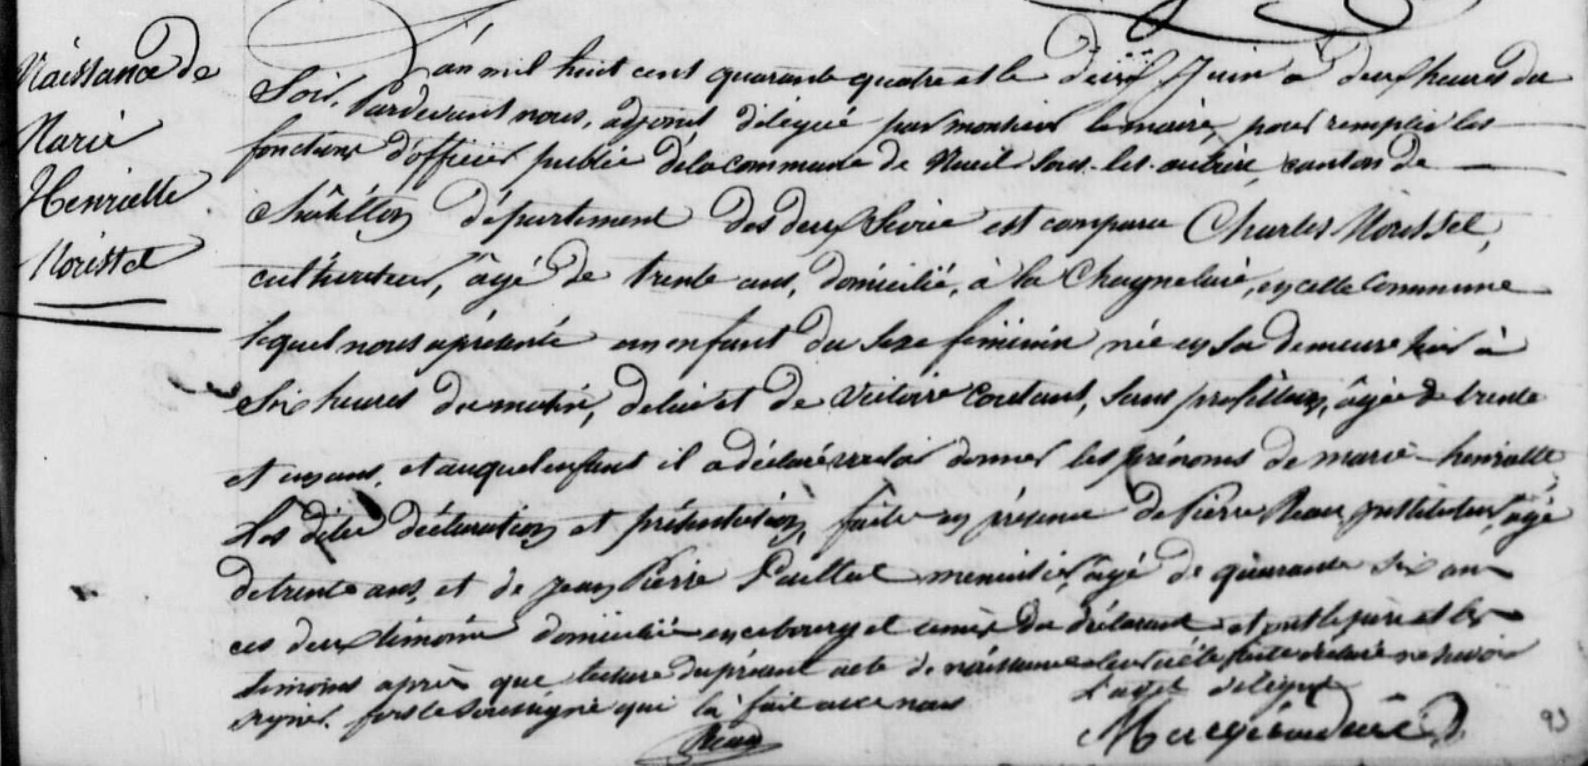 Naissance de
Marie
Henriette
Noirstel
L'an mil huit cent quarante quatre et le deux Juin à deux heures du
Soir. Pardevant nous, adjoint délégué par monsieur le maire, pour remplir les
fonctions d'officier public de la commune de Nueil sous-les-aubiers, canton de
châtillon département des deux Sèvres est comparu Charles
cultivateur, âgé de trente ans, domicilié, à la en cette Commune
lequel nous a présenté un enfant du Sexe féminin née en Sa demeure hier à
Six heures du matin, de lui et de Victoire Coutant, Sans profession, âgée de trente
et un ans, et auquel enfant il a déclaré vouloir donner les prénoms de marie-henriette
Les dites déclaration et présentation, faite en présence de Pierre Reau, instituteur, âgé
de trente ans, et de jean Pierre menuisier, âgé de quarante Six ans
ces deux témoins domiciliés en ce bourg et amis du déclarant et ont le père et les
témoins après que lecture du présent acte de naissance leur a été faite déclaré ne savoir
signer. fors le Soussigné qui l'a fait avec nous
L'adjt délégué
Reau
93